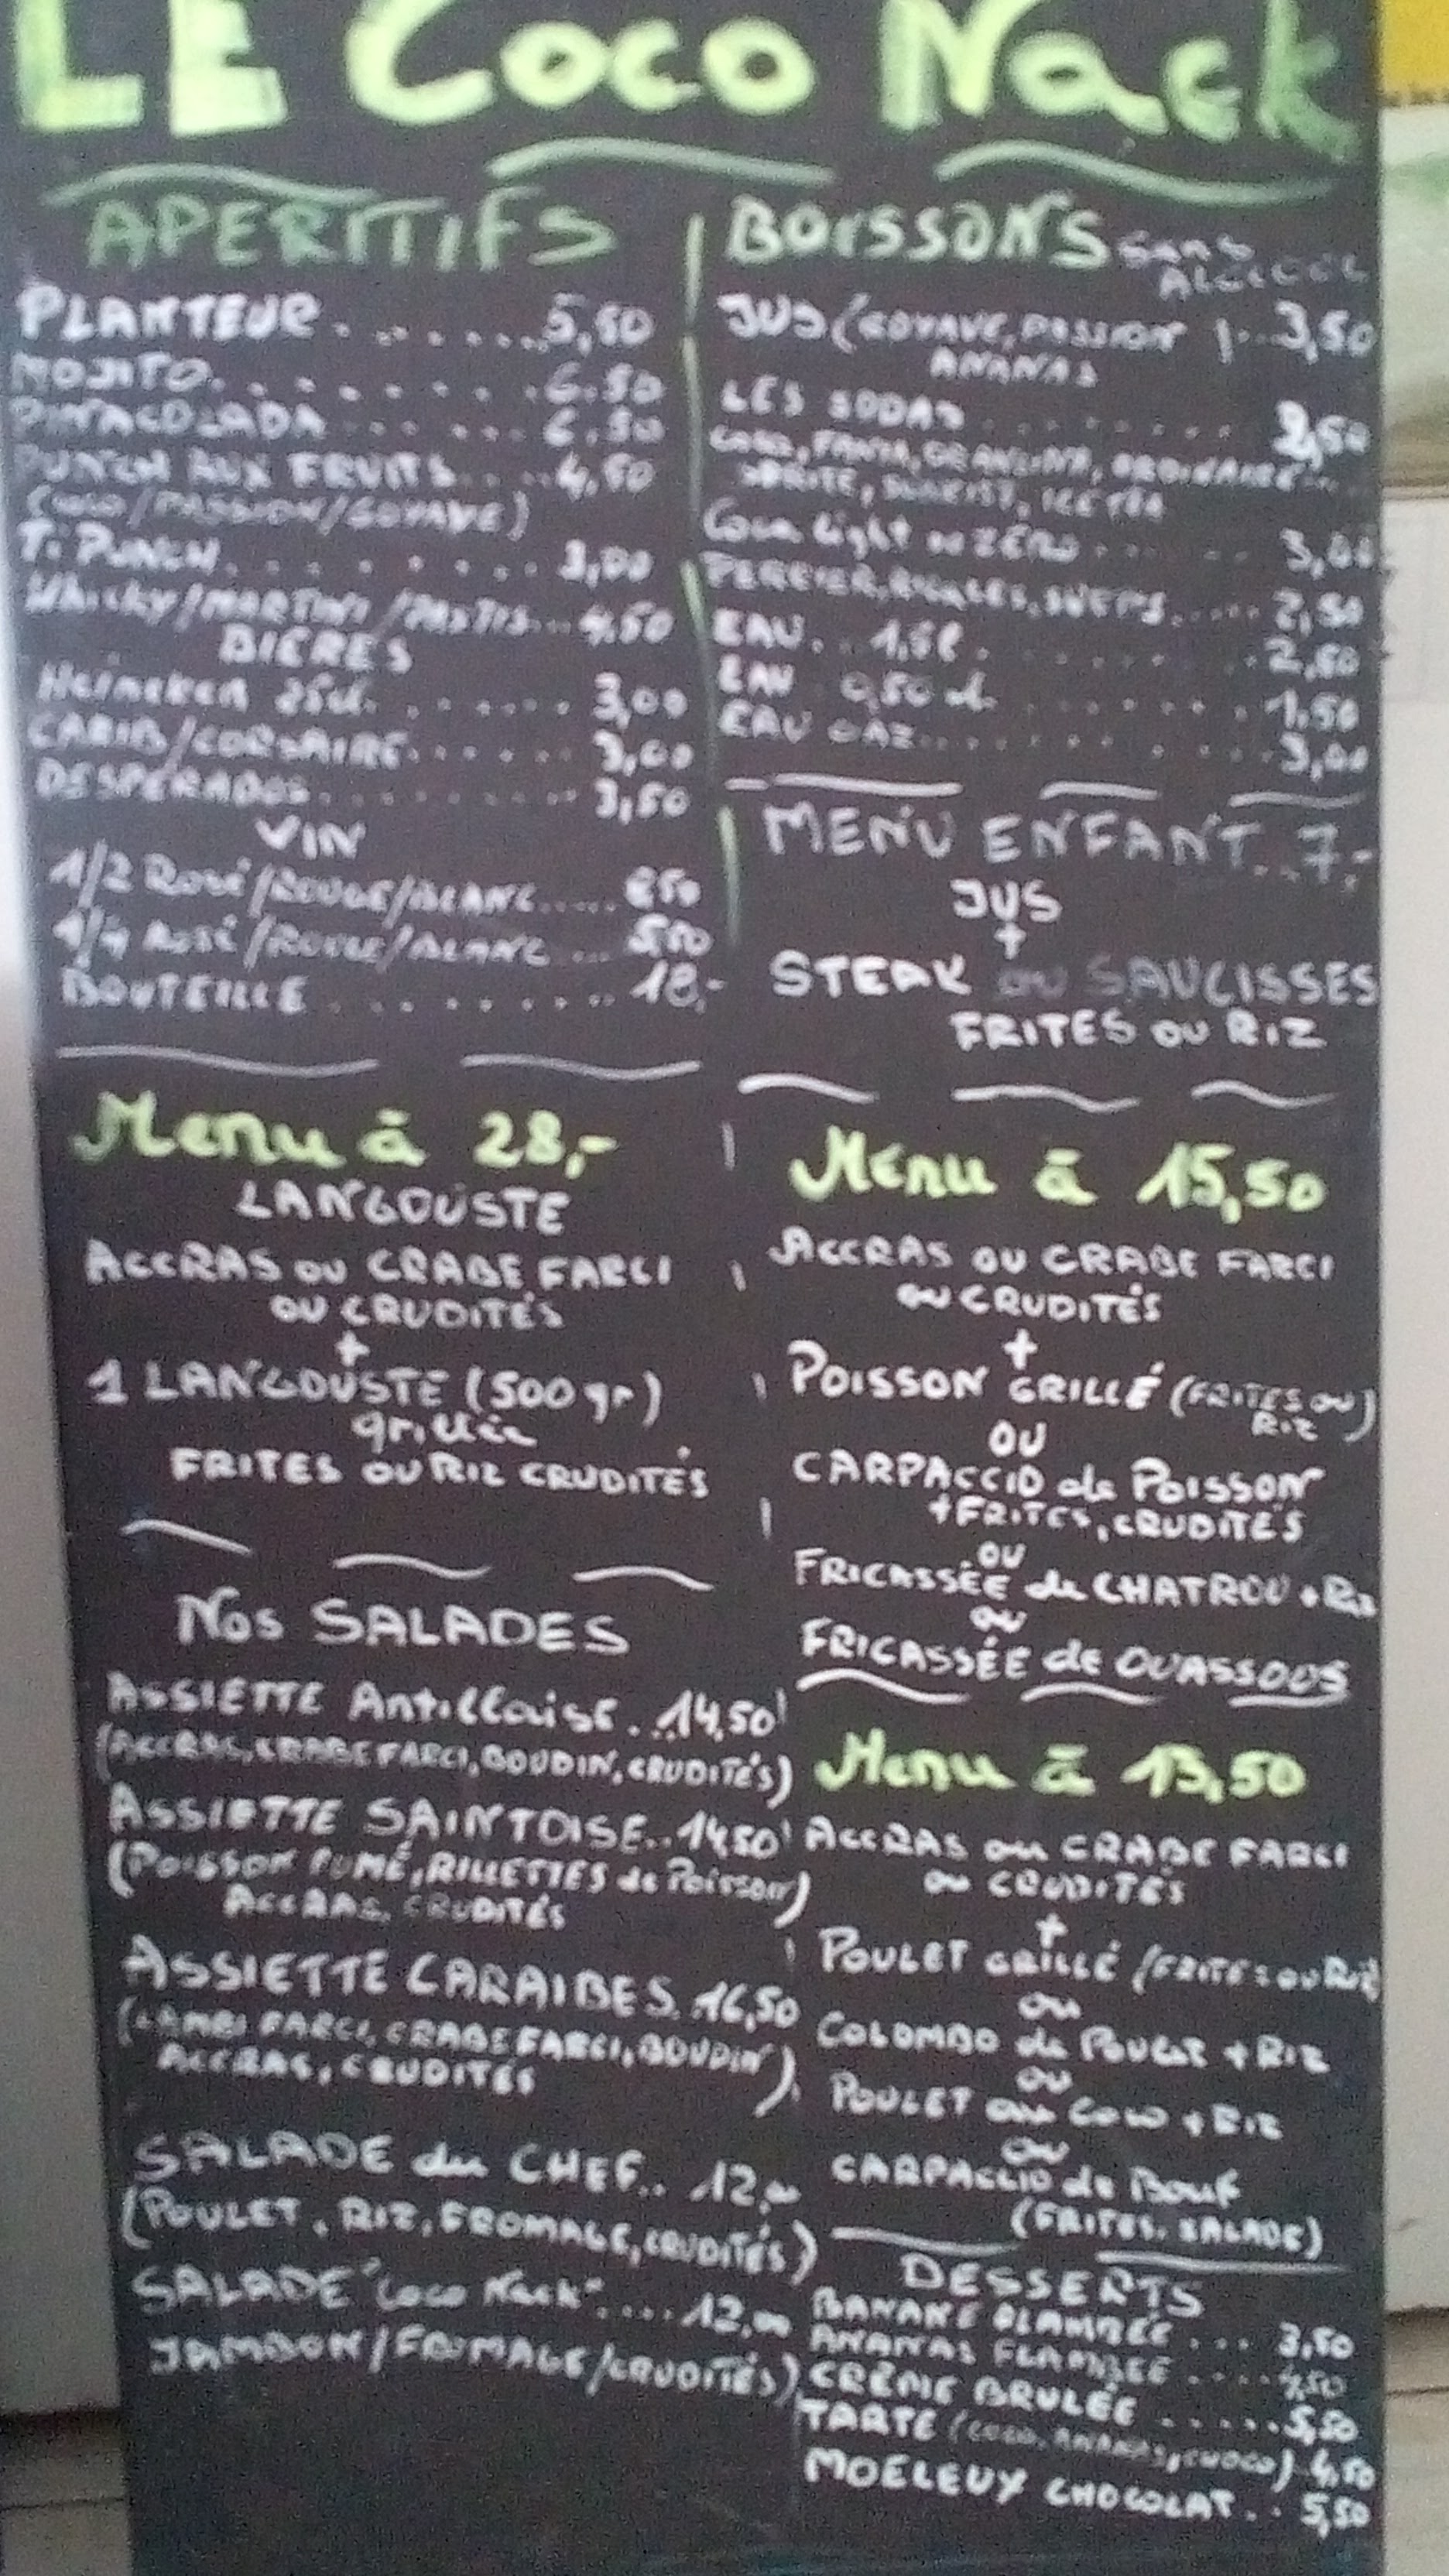 LE Coco Nack
APERITIFS
PLANTEUR. ....... 5,50
MOJITO. ........ 6.50
PINACOLADA ...... 6,50
PUNCH AUX FRUITS... 4,50
(COCO/PASSION/GOYAVE)
Ti PUNCH. ........ 3,00
Whisky/MARTINI/PASTIS... 4,50
BIÈRES
Heineken 25cl. ...... 3,00
CARIB/CORSAIRE....... 3,00
DESPERADOS......... 3,50
VIN
1/2 Rosé/ROUGE/BLANC.....
1/4 ROSÉ/ROUGE/BLANC ...
BOUTEILLE ........ 18,-
BOISSONS Sans
ALCOOL
JUS (GOYAVE, PASSION )... 3,50
ANANAS
LES SODAS ........
COCA, FANTA, ORANGINA, ORDINAIRE...
SPRITE, ICE TEA
Coca light ou ZÉRO ..... 3,00
PERRIER, 2,50
EAU. . 1,5l ....... 2,50
EAU 0,50 cl ...... 1,50
EAU GAZ......... 3,00
MENU ENFANT. . 7.-
JUS
+
STEAK ou SAUCISSES
FRITES OU RIZ
Menu à 28,-
LANGOUSTE
ACCRAS OU CRABE FARCI
OU CRUDITÉS
+
1 LANGOUSTE (500 gr)
grillée
FRITES OU RIZ CRUDITÉS
Nos SALADES
ASSIETTE Antillaise. ..14,50
(ACCRAS, CRABE FARCI, BOUDIN, CRUDITÉS)
ASSIETTE SAINTOISE...14,50
(POISSON FUMÉ, RILLETTES de Poisson)
ACCRAS, CRUDITÉS
ASSIETTE CARAIBES. 16,50
(LAMBI FARCI, CRABE FARCI, BOUDIN)
ACCRAS, CRUDITÉS
SALADE du CHEF.. 12,00
(POULET, RIZ, FROMAGE, CRUDITÉS)
SALADE "Coco Nack". ... 12,00
JAMBON/FROMAGE/CRUDITÉS)
Menu à 15,50
ACCRAS OU CRABE FARCI
ou CRUDITÉS
+
POISSON GRILLÉ (FRITES OU)
RIZ
OU
CARPACCIO de POISSON
+FRITES, CRUDITÉS
OU
FRICASSÉE de CHATROU + Riz
OU
FRICASSÉE de OUASSOUS
Menu à 13,50
ACCRAS ou CRABE FARCI
ou CRUDITÉS
+
POULET GRILLÉ (FRITES OU RIZ)
OU
COLOMBO de POULET + RIZ
OU
POULET au COCO + RIZ
OU
CARPACCIO de Bœuf
(FRITES, SALADE)
DESSERTS
BANANE FLAMBÉE ... 3,50
ANANAS FLAMBÉE .... 4,50
CRÈME BRULÉE .....5,50
TARTE (COCO, ANANAS, CHOCO) 4,50
MOELEUX CHOCOLAT. . 5,50